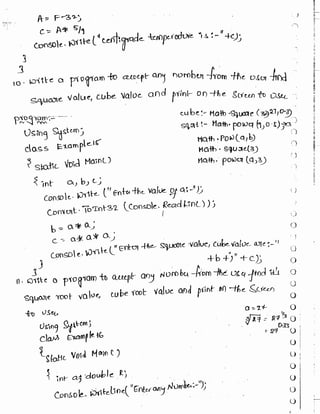 A = F-32;
C = A * 5/9
Console.Write("centigrade temperature is :-"+c);
}
}
10. Write a program to accept any number from the user find
square value, cube value and print on the screen to user.
program:-
Using System;
class Example15
{ static void Main()
{ int a, b, c;
Console.Write("Enter the value of a:-");
Convert.ToInt32(Console.ReadLine());
b = a*a;
c = a*a*a;
Console.Write("Enter the square value, cube value are:-"
+b+","+c);
}
}
cube:- Math.
Math.Pow(a,b)
Math.square(3)
Math.power(a,3)
11. Write a program to accept any Number from the user find it's
square root value, cube root value and print on the screen
to user.
Using System;
class Example 16
{ Static Void Main()
{ int a; double R;
Console.WriteLine("Enter any Number:-");
a = 27
0.33